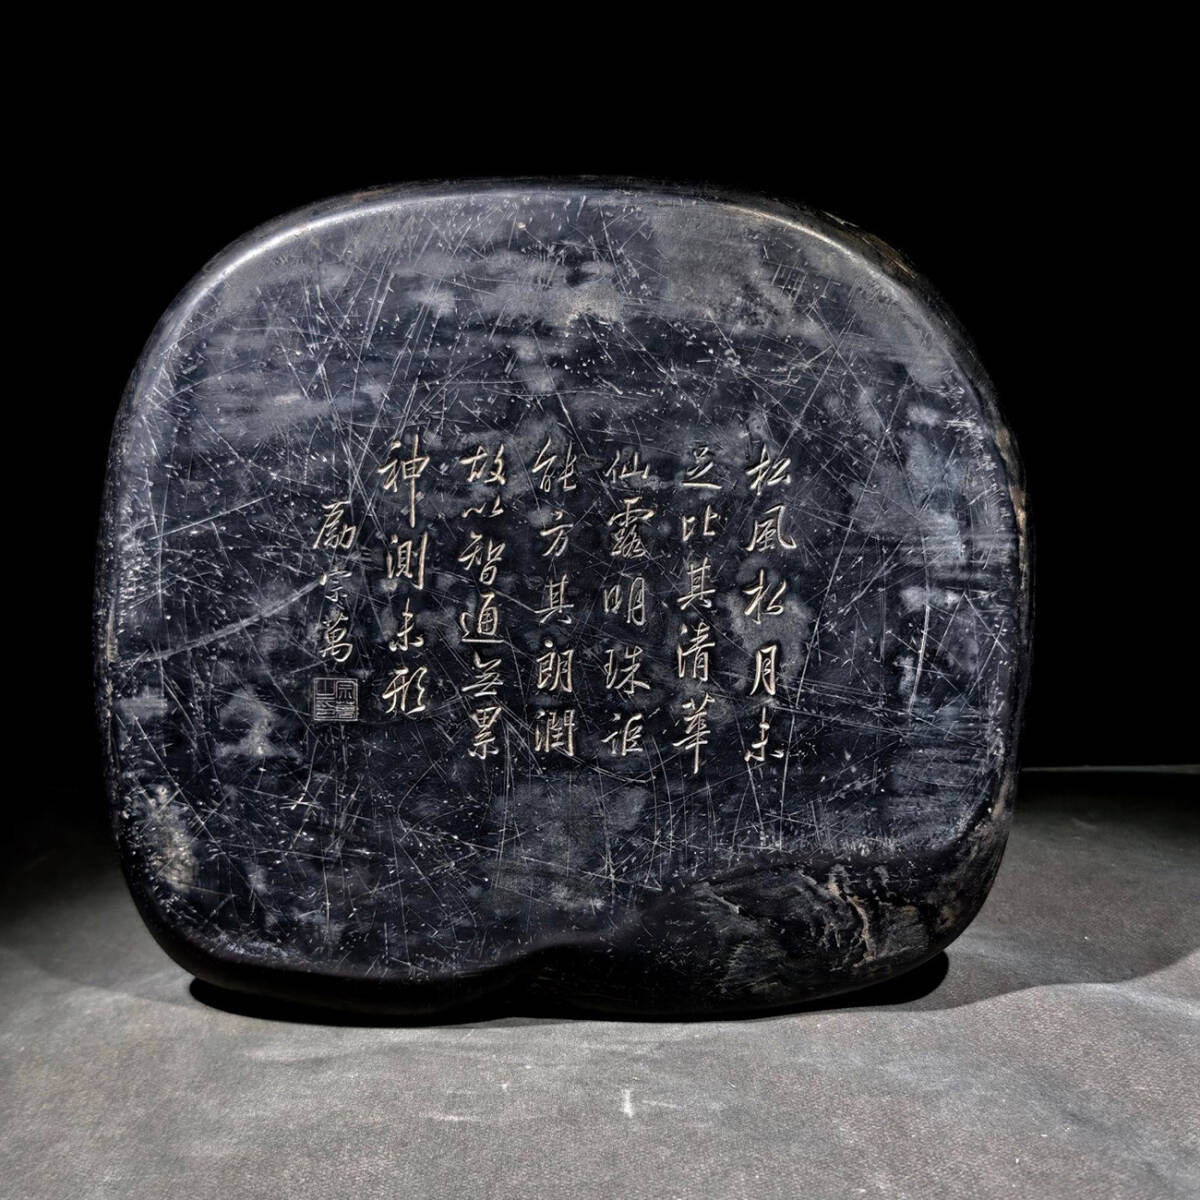 松風松月未
足比其清華
仙露明珠詎
能方其朗潤
故以智通無累
神測未形
勵宗萬
宗萬之印